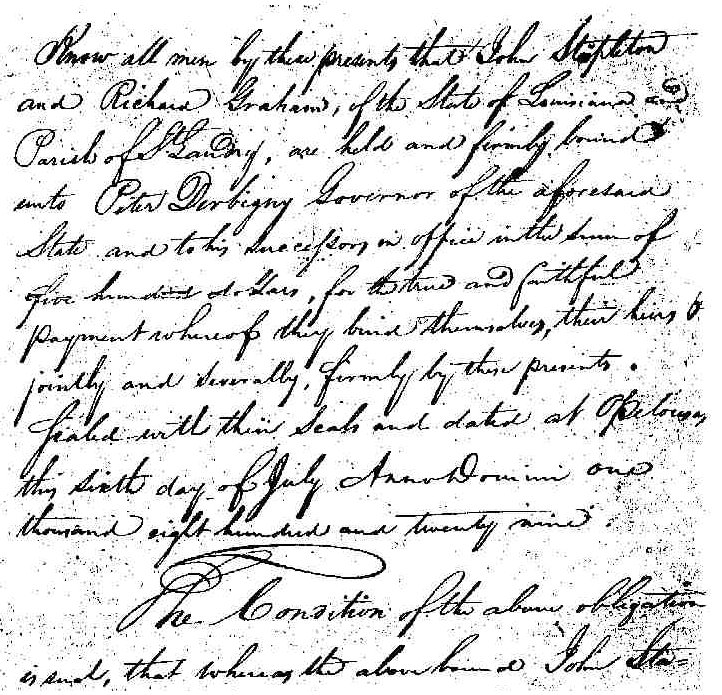 Know all men by these presents that John Stapleton
and Richard Graham, of the State of Louisiana and
Parish of St Landry, are held and firmly bound
unto Peter Derbigny Governor of the aforesaid
State and to his successors in office in the sum of
five hundred dollars, for the true and faithful
payment whereof they bind themselves, their heirs &
jointly and severally, firmly by these presents.
Sealed with their seals and dated at Opelousas
this sixth day of July Anno Domini one
thousand eight hundred and twenty nine
The Condition of the above obligation
is such, that whereas the above bound John Sta-